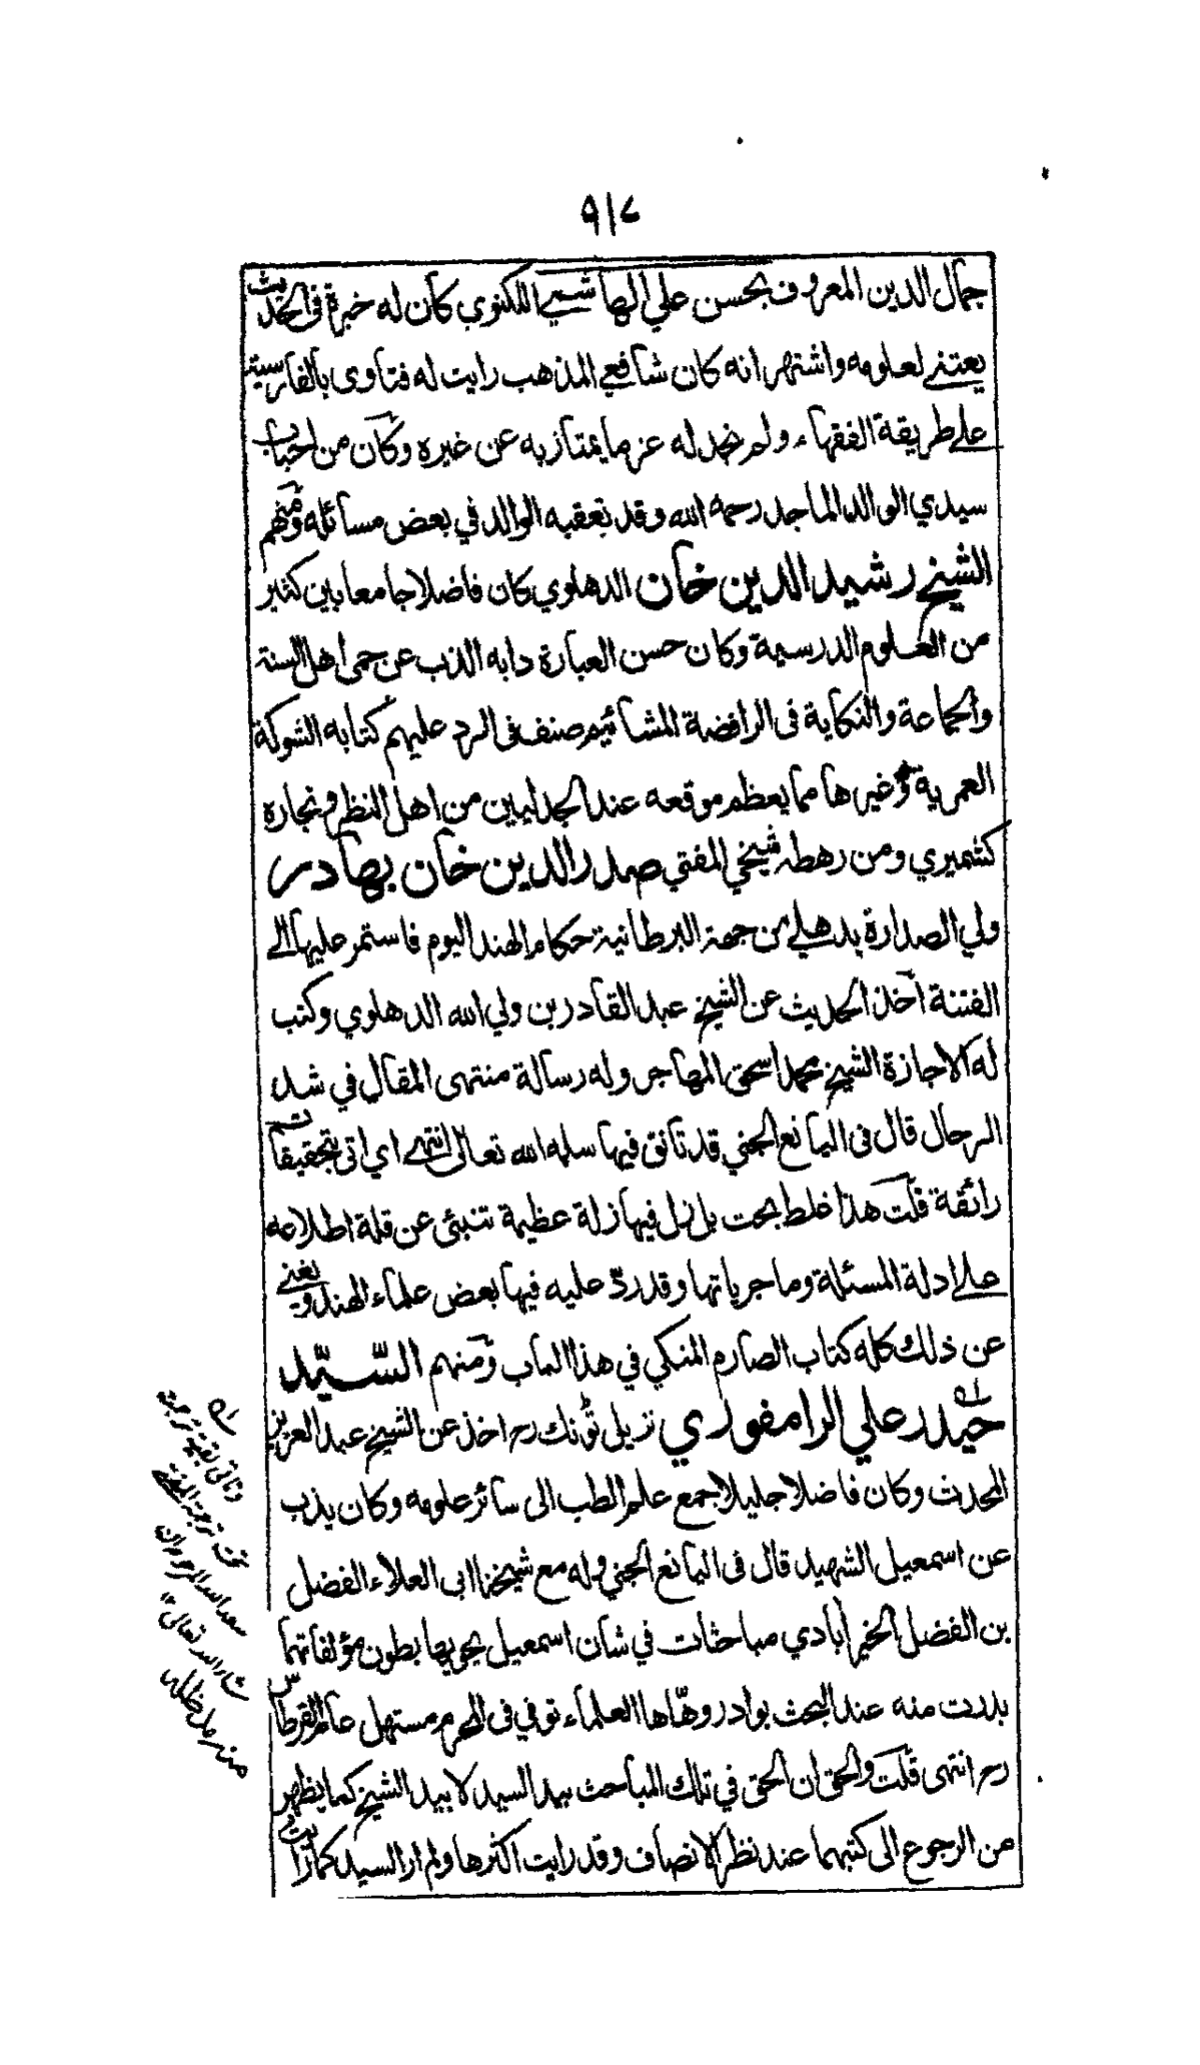 ٩١٧
جمال الدين المعروف بحسن علي الهاشمي اللكنوي كان له خبرة فى الحديث
يعتنے لعلومه واشتهر انه كان شافعي المذهب رايت له فتاوى بالفارسية
علے طريقة الفقهاء ولم نجد له عز ما يمتاز به عن غيره وكان من احباب
سيدي الوالد الماجد رحمه الله وقد تعقبه الوالد في بعض مسائله ومنهم
الشيخ رشيد الدين خان الدهلوي كان فاضلا جامعا بين كثير
من العلوم الدرسية وكان حسن العبارة دابه الذب عن حمى اهل السنة
والجماعة والنكاية فى الرافضة المشائيم صنف فى الرد عليهم كتابه الشوكة
العمرية وغيرها مما يعظم موقعه عند الجدليين من اهل النظر ونجاره
كشميري ومن رهطه شيخي المفتي صدر الدين خان بهادر
ولي الصدارة بدهلے من جهة البرطانية حكام الهند اليوم فاستمر عليها الے
الفتنة آخذ الحديث عن الشيخ عبد القادر بن ولي الله الدهلوي وكتب
له الاجازة الشيخ محمد اسحق المهاجر وله رسالة منتهى المقال في شد
الرحال قال فى اليانع الجني قد تانق فيها سلمه الله تعالى انتهے اي اتى بتحقيقات
رائقة قلت هذا غلط بحت بل زل فيها زلة عظيمة تنبئ عن قلة اطلاعه
علے ادلة المسئلة وماجرياتها وقد ردّ عليه فيها بعض علماء الهند ويغنے
عن ذلك كله كتاب الصارم المنكي في هذا الباب ومنهم السّيّد
حيدر علي الرامفوري نزيل ٹونك رح اخذ عن الشيخ عبد العزيز
المحدث وكان فاضلا جليلا جمع علم الطب الى سائر علومه وكان يذب
عن اسمعيل الشهيد قال فى اليانع الجني وله مع شيخنا ابى العلاء الفضل
بن الفضل الخير آبادي مباحثات في شان اسمعيل يحويها بطون مؤلفاتهما
بدرت منه عند البحث بوادر وهّاها العلماء توفي فى المحرم مستهل عام القرطاس
رح انتهى قلت والحق ان الحق في تلك المباحث بيد السيد لا بيد الشيخ كما يظهر
من الرجوع الى كتبهما عند نظر الانصاف وقد رايت اكثرها ولم ار السيد كما رايت
وتاتى بقية ترجمة
تحت ترجمة المفتي
سعد الله المرحوم ان
شاء الله تعالى ١٢
منه مد ظله